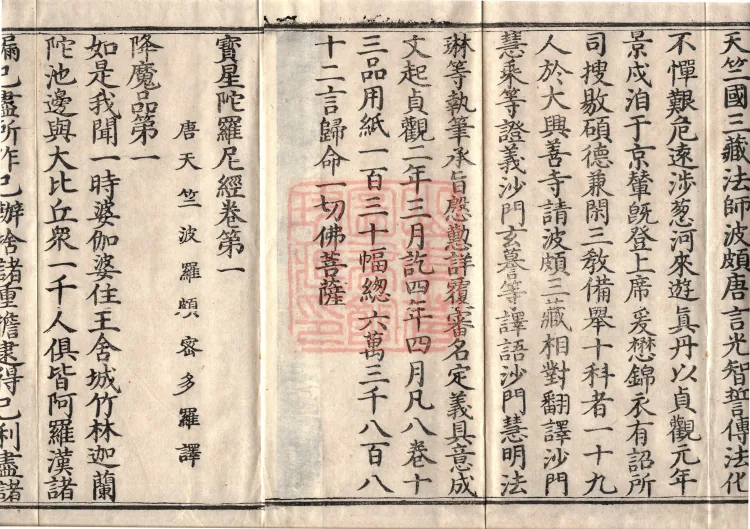 天竺國三藏法師波頗唐言光智誓傳法化
不憚艱危遠涉葱河來遊真丹以貞觀元年
景戍洎于京輦旣登上席爰懋錦衣有詔所
司搜敭碩德兼閑三敎備舉十科者一十九
人於大興善寺請波頗三藏相對翻譯沙門
慧乘等證義沙門玄謩等譯語沙門慧明法
琳等執筆承旨慇懃詳覆審名定義具意成
文起貞觀二年三月訖四年四月凡八卷十
三品用紙一百三十幅總六萬三千八百八
十二言歸命一切佛菩薩
寶星陀羅尼經卷第一
唐天竺波羅頗蜜多羅譯
降魔品第一
如是我聞一時婆伽婆住王舍城竹林迦蘭
陀池邊與大比丘衆一千人俱皆阿羅漢諸
漏已盡所作已辦捨諸重擔逮得己利盡諸